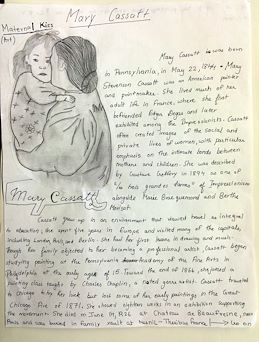 Mary Cassatt
Maternal Kiss
(Art)
Mary Cassatt is was born
in Pennsylvania, in May 22, 1844. Mary
Stevenson Cassatt was an American painter
and printmaker. She lived much of her
adult life in France, where she first
befriended Edgar Degas and later
exhibited among the Impressionists. Cassatt
often created images of the social and
private lives of women, with particular
emphasis on the intimate bonds between
mothers and children. She was described
by Gustave Geffroy in 1894 as one of
"les trois grandes dames" of Impressionism
alongside Marie Bracquemond and Berthe
Morisot.
Mary Cassatt
Cassatt grew up in an environment that viewed travel as integral
to education; she spent five years in Europe and visited many of the capitals,
including London, Paris, and Berlin. She had her first lessons in drawing and music
though her family objected to her becoming a professional artist. Cassatt began
studying painting at the Pennsylvania Academy of the Fine Arts in
Philadelphia at the early age of 15. Toward the end of 1866, she joined a
painting class taught by Charles Chaplin, a noted genre artist. Cassatt traveled
to Chicago to try her luck but lost some of her early paintings in the Great
Chicago Fire of 1871. She showed eighteen works in an exhibition supporting
the movement. She died on June 14, 1926 at Chateau de Beaufresne, near
Paris and was buried in family vault at Mesnil-Theribus, France